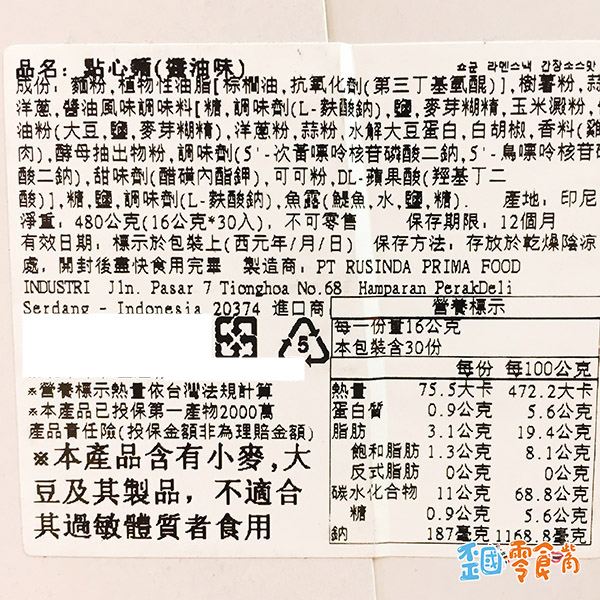 品名: 點心麵(醬油味) 쇼군 라멘스낵 간장소스맛
成份: 麵粉,植物性油脂[棕櫚油,抗氧化劑(第三丁基氫醌)],樹薯粉,蒜
洋蔥,醬油風味調味料[糖,調味劑(L-麩酸鈉),鹽,麥芽糊精,玉米澱粉,
油粉(大豆,鹽,麥芽糊精),洋蔥粉,蒜粉,水解大豆蛋白,白胡椒,香料(雞
肉),酵母抽出物粉,調味劑(5'-次黃嘌呤核苷磷酸二鈉,5'-鳥嘌呤核苷磷
酸二鈉),甜味劑(醋磺內酯鉀),可可粉,DL-蘋果酸(羥基丁二
酸)],糖,鹽,調味劑(L-麩酸鈉),魚露(鯷魚,水,鹽,糖). 產地: 印尼
淨重: 480公克(16公克*30入), 不可零售 保存期限: 12個月
有效日期: 標示於包裝上(西元年/月/日) 保存方法: 存放於乾燥陰涼
處, 開封後盡快食用完畢 製造商: PT RUSINDA PRIMA FOOD
INDUSTRI Jln. Pasar 7 Tionghoa No.68 Hamparan PerakDeli
Serdang - Indonesia 20374 進口商
5
※營養標示熱量依台灣法規計算
※本產品已投保第一產物2000萬
產品責任險(投保金額非為理賠金額)
※本產品含有小麥,大
豆及其製品, 不適合
其過敏體質者食用
營養標示
每一份量16公克
本包裝含30份
每份 每100公克
熱量 75.5大卡 472.2大卡
蛋白質 0.9公克 5.6公克
脂肪 3.1公克 19.4公克
飽和脂肪 1.3公克 8.1公克
反式脂肪 0公克 0公克
碳水化合物 11公克 68.8公克
糖 0.9公克 5.6公克
鈉 187毫克 1168.8毫克
歪國零食嘴